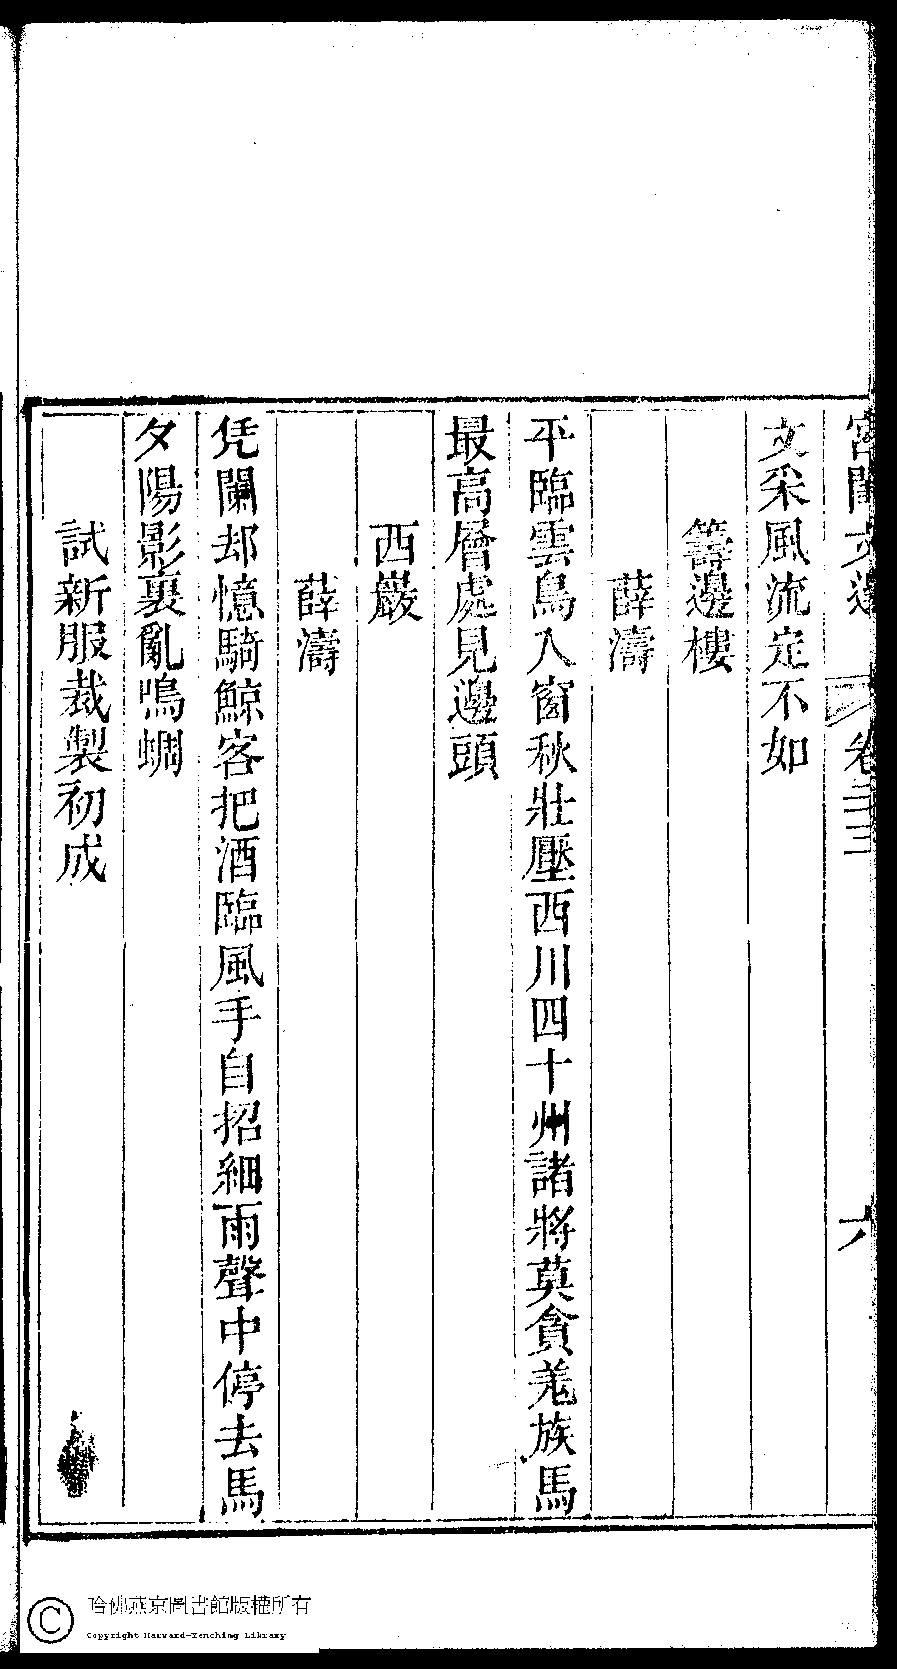 宮閨文選 卷二十三 六
文采風流定不如
籌邊樓
薛濤
平臨雲鳥入窗秋壯壓西川四十州諸將莫貪羗族馬
最高層處見邊頭
西巖
薛濤
凭闌却憶騎鯨客把酒臨風手自招細雨聲中停去馬
夕陽影裏亂鳴蜩
試新服裁製初成
哈佛燕京圖書館版權所有
Copyright Harvard-Yenching Library